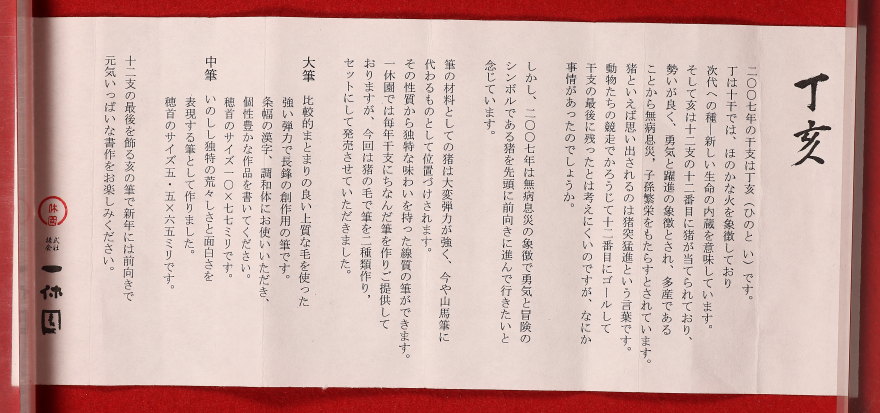 丁亥
二〇〇七年の干支は丁亥（ひのと　い）です。
丁は十干では、ほのかな火を象徴しており
次代への種―新しい生命の内蔵を意味しています。
そして亥は十二支の十二番目に猪が当てられており、
勢いが良く、勇気と躍進の象徴とされ、多産である
ことから無病息災，子孫繁栄をもたらすとされています。
猪といえば思い出されるのは猪突猛進という言葉です。
動物たちの競走でかろうじて十二番目にゴールして
干支の最後に残ったとは考えにくいのですが、なにか
事情があったのでしょうか。
しかし、二〇〇七年は無病息災の象徴で勇気と冒険の
シンボルである猪を先頭に前向きに進んで行きたいと
念じています。
筆の材料としての猪は大変弾力が強く、今や山馬筆に
代わるものとして位置づけされます。
その性質から独特な味わいを持った線質の筆ができます。
一休園では毎年干支にちなんだ筆を作りご提供して
おりますが、今回は猪の毛で筆を二種類作り，
セットにして発売させていただきました。
大筆　比較的まとまりの良い上質な毛を使った
強い弾力で長鋒の創作用の筆です。
条幅の漢字、調和体にお使いいただき、
個性豊かな作品を書いてください。
穂首のサイズ一〇×七七ミリです。
中筆　いのしし独特の荒々しさと面白さを
表現する筆として作りました。
穂首のサイズ五・五×六五ミリです。
十二支の最後を飾る亥の筆で新年には前向きで
元気いっぱいな書作をお楽しみください。
休園
株式会社 一休園